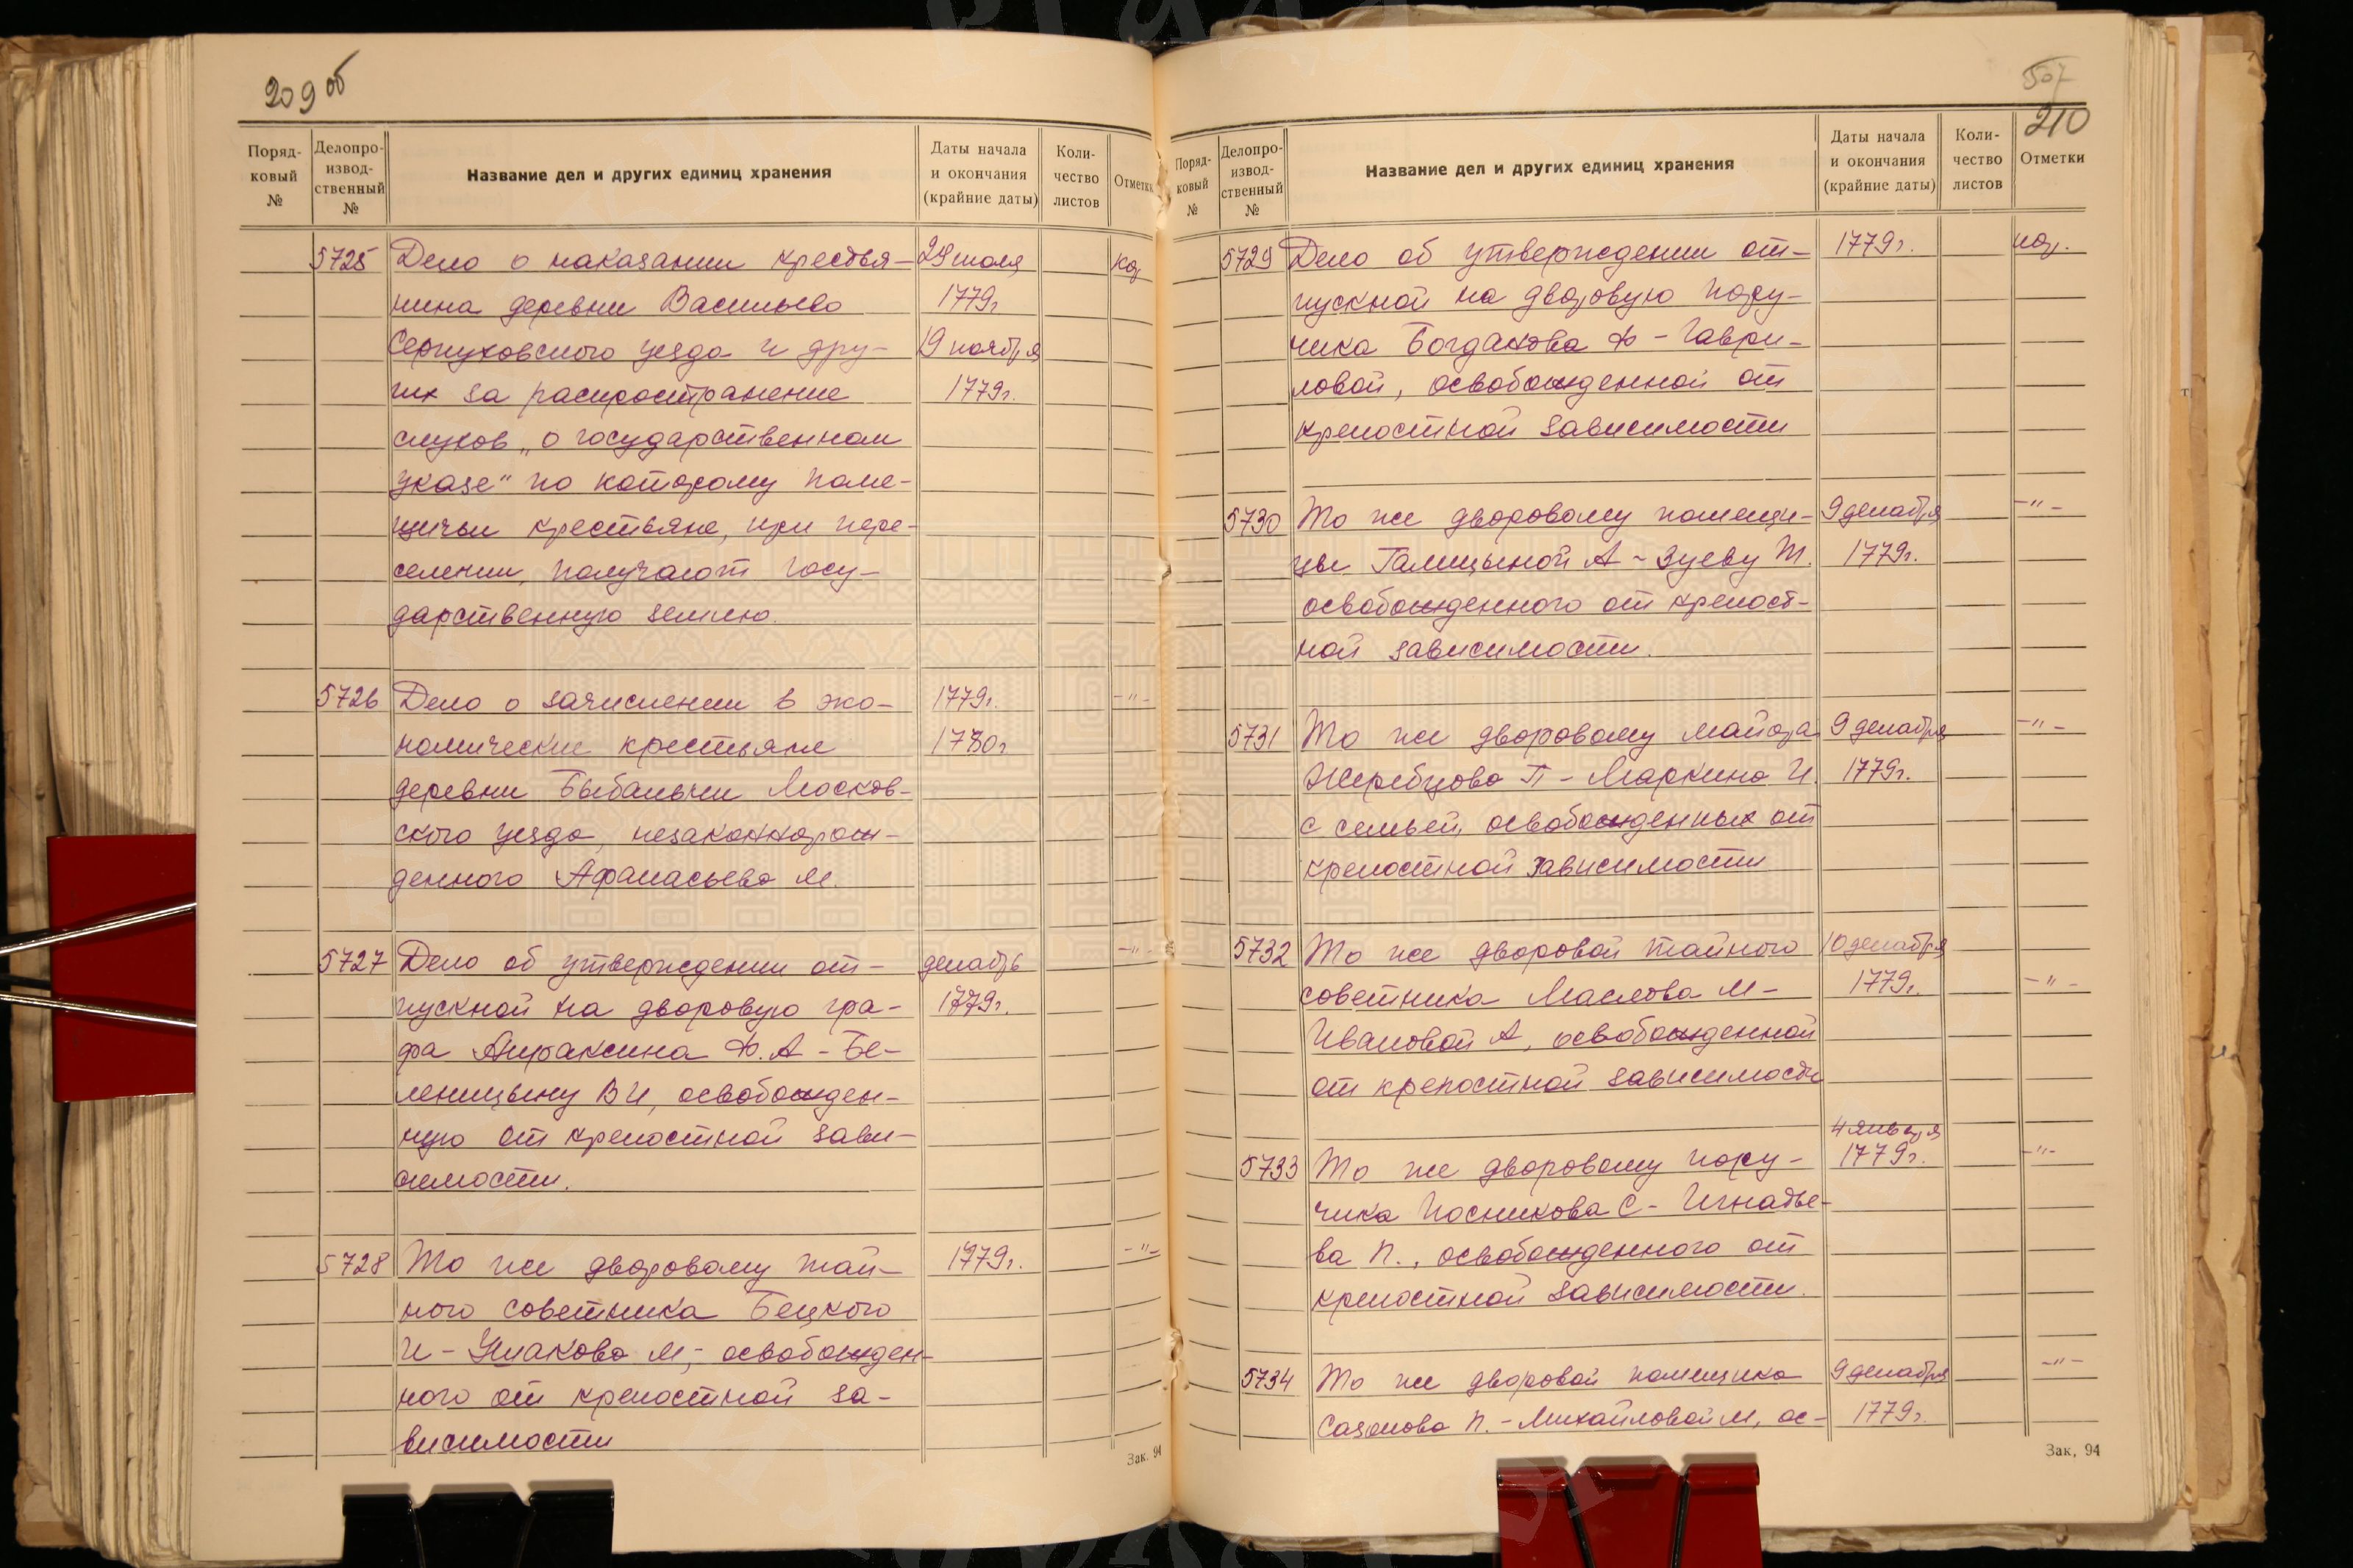 209 об
Поряд-
ковый
№
Делопро-
извод-
ственный
№
Название дел и других единиц хранения
Даты начала
и окончания
(крайние даты)
Коли-
чество
листов
Отметки
5725 Дело о наказании крестья- 29 июля
нина деревни Васильево 1779г
Серпуховского уезда и дру- 19 ноября
гих за распространение 1779г.
слухов „о государственном
указе" по которому поме-
щичьи крестьяне, при пере-
селении, получают госу-
дарственную землю.
5726 Дело о зачислении в эко- 1779г. -"-
номические крестьяне 1780г
деревни Бибальчи Москов-
ского уезда, незаконнорож-
денного Афанасьева М.
5727 Дело об утверждении от- декабрь -"-
пускной на дворовую гра- 1779г.
фа Апраксина Ф.А - Бе-
леницыну В И, освобожден-
ную от крепостной зави-
симости.
5728 То же дворовому тай- 1779г. -"-
ного советника Бецкого
И - Ушакова М, освобожден-
ного от крепостной за-
висимости
Зак. 94
507
210
Поряд-
ковый
№
Делопро-
извод-
ственный
№
Название дел и других единиц хранения
Даты начала
и окончания
(крайние даты)
Коли-
чество
листов
Отметки
5729 Дело об утверждении от- 1779г.
пускной на дворовую пору-
чика Богданова Ф - Гаври-
ловой, освобожденной от
крепостной зависимости
5730 То же дворовому помещи- 9 декабря -"-
цы Галицыной А - Зуеву Т. 1779г.
освобожденного от крепост-
ной зависимости.
5731 То же дворовому майора 9 декабря -"-
Жеребцова П - Маркина И. 1779г.
с семьей, освобожденных от
крепостной зависимости
5732 То же дворовой тайного 10 декабря
советника Маслова М - 1779г. -"-
Ивановой А, освобожденной
от крепостной зависимости
4 января
5733 То же дворовому пору- 1779г. -"-
чика Посникова С - Игнатье-
ва П., освобожденного от
крепостной зависимости.
5734 То же дворовой помещика 9 декабря -"-
Сазонова П. - Михайловой М, ос- 1779г.
Зак, 94